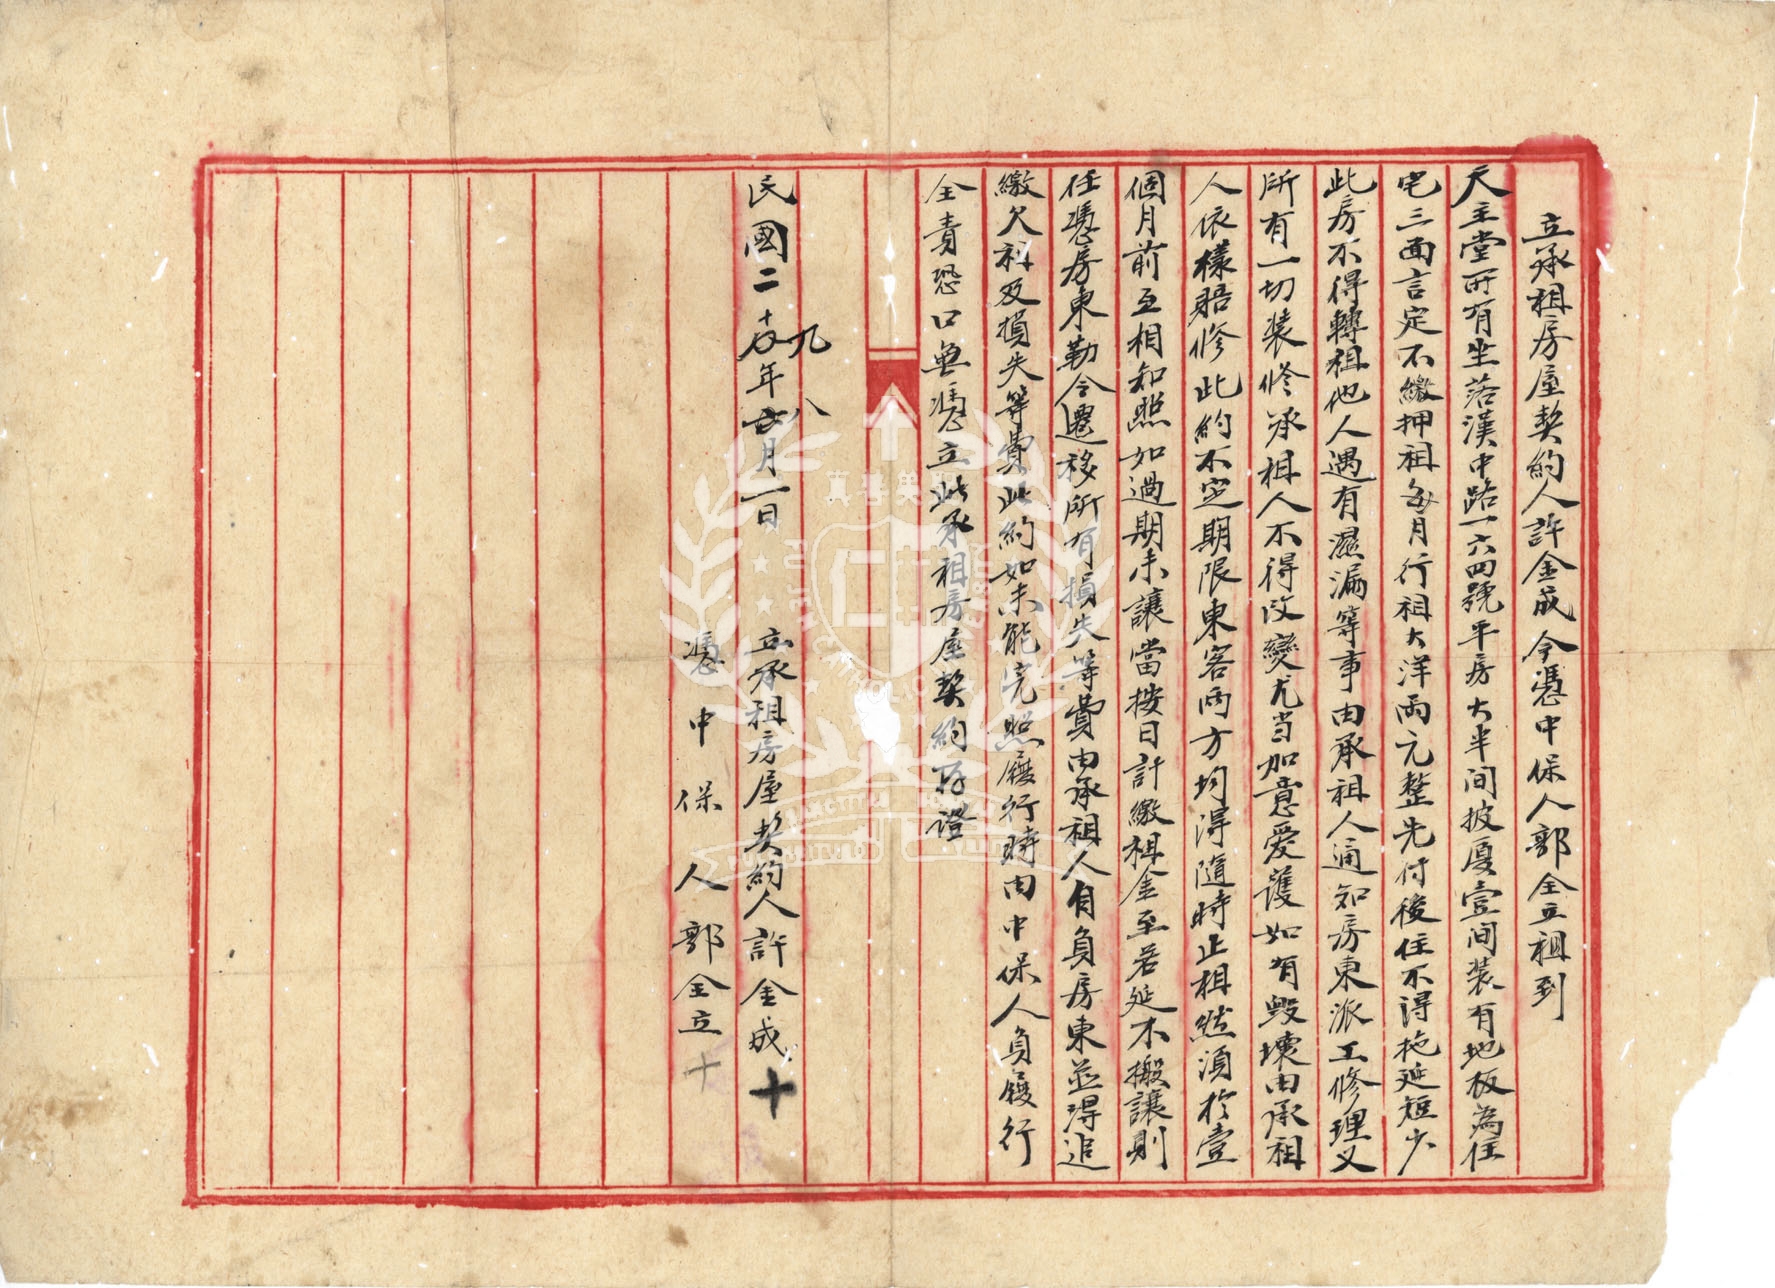 立承租房屋契約人許金成今憑中保人郭全立租到
天主堂所有坐落漢中路一六四號平房大半间披厦壹间装有地板為住
宅三面言定不繳押租每月行租大洋兩元整先付後住不得拖延短少
此房不得轉租他人遇有濕漏等事由承租人通知房東派工修理又
所有一切装修承租人不得改變尤当加意爱護如有毁壞由承租
人依樣賠修此約不定期限東客両方均得隨時止租然須於壹
個月前互相知照如過期未讓當按日計繳租金至若延不搬讓則
任憑房東勒令遷移所有損失等費由承租人自負房東並得追
繳欠租及損失等費此約如未能完照履行時由中保人負履行
全責恐口無憑立此承租房屋契約存證
民國二十九年八月一日 立承租房屋契約人許金成 十
憑中保人郭全立 十